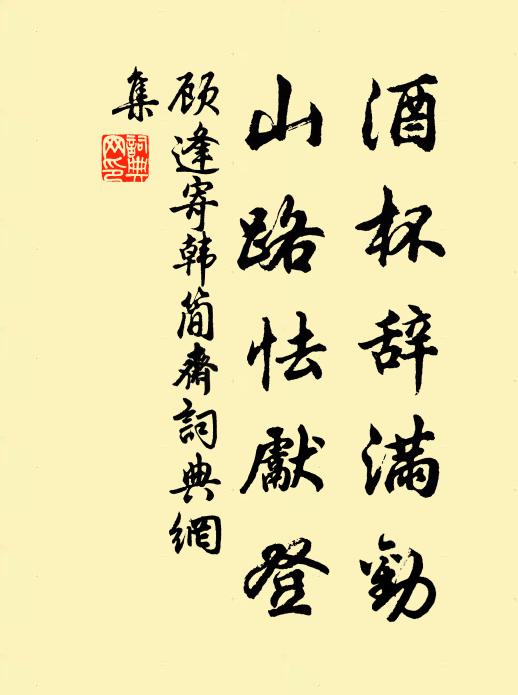 酒杯辞满劝
山路怯獻登
顾逢寄韩简齋詞典網
集
詞典
网印